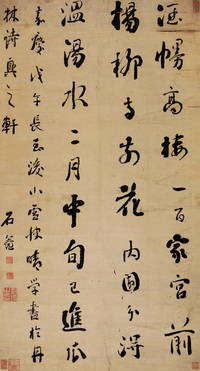 酒幔高樓一百家宮前
楊柳寺前花內園分得
溫湯水二月中旬已進瓜
嘉慶戊午長至後小雪快晴學書於丹
林詩之軒
石菴